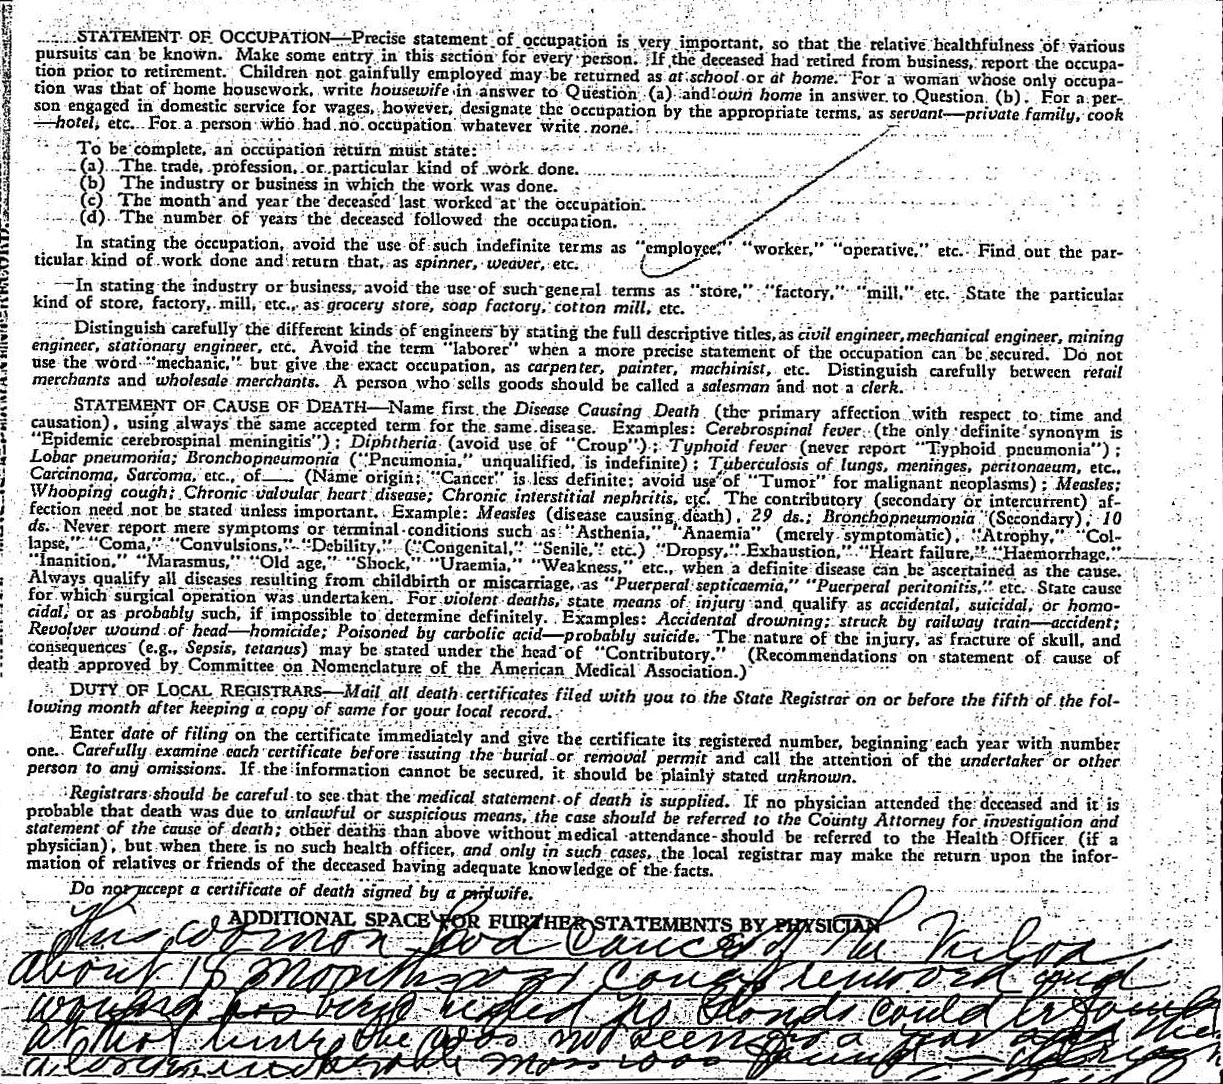 STATEMENT OF OCCUPATION—Precise statement of occupation is very important, so that the relative healthfulness of various
pursuits can be known. Make some entry in this section for every person. If the deceased had retired from business, report the occupa-
tion prior to retirement. Children not gainfully employed may be returned as at school or at home. For a woman whose only occupa-
tion was that of home housework, write housewife in answer to Question (a) and own home in answer to Question (b). For a per-
son engaged in domestic service for wages, however, designate the occupation by the appropriate terms, as servant—private family, cook
—hotel, etc. For a person who had no occupation whatever write none.
To be complete, an occupation return must state:
(a) The trade, profession, or particular kind of work done.
(b) The industry or business in which the work was done.
(c) The month and year the deceased last worked at the occupation.
(d) The number of years the deceased followed the occupation.
In stating the occupation, avoid the use of such indefinite terms as "employee," "worker," "operative," etc. Find out the par-
ticular kind of work done and return that, as spinner, weaver, etc.
In stating the industry or business, avoid the use of such general terms as "store," "factory," "mill," etc. State the particular
kind of store, factory, mill, etc., as grocery store, soap factory, cotton mill, etc.
Distinguish carefully the different kinds of engineers by stating the full descriptive titles, as civil engineer, mechanical engineer, mining
engineer, stationary engineer, etc. Avoid the term "laborer" when a more precise statement of the occupation can be secured. Do not
use the word "mechanic," but give the exact occupation, as carpenter, painter, machinist, etc. Distinguish carefully between retail
merchants and wholesale merchants. A person who sells goods should be called a salesman and not a clerk.
STATEMENT OF CAUSE OF DEATH—Name first the Disease Causing Death (the primary affection with respect to time and
causation), using always the same accepted term for the same disease. Examples: Cerebrospinal fever (the only definite synonym is
"Epidemic cerebrospinal meningitis"); Diphtheria (avoid use of "Croup"); Typhoid fever (never report "Typhoid pneumonia");
Lobar pneumonia; Bronchopneumonia ("Pneumonia," unqualified, is indefinite); Tuberculosis of lungs, meninges, peritonaeum, etc.,
Carcinoma, Sarcoma, etc., of—— (Name origin; "Cancer" is less definite; avoid use of "Tumor" for malignant neoplasms); Measles;
Whooping cough; Chronic valvular heart disease; Chronic interstitial nephritis, etc. The contributory (secondary or intercurrent) af-
fection need not be stated unless important. Example: Measles (disease causing death), 29 ds.; Bronchopneumonia (Secondary), 10
ds. Never report mere symptoms or terminal conditions such as "Asthenia," "Anaemia" (merely symptomatic), "Atrophy," "Col-
lapse," "Coma," "Convulsions," "Debility," ("Congenital," "Senile," etc.) "Dropsy," Exhaustion," "Heart failure," "Haemorrhage,"
"Inanition," "Marasmus," "Old age," "Shock," "Uraemia," "Weakness," etc., when a definite disease can be ascertained as the cause.
Always qualify all diseases resulting from childbirth or miscarriage, as "Puerperal septicaemia," "Puerperal peritonitis," etc. State cause
for which surgical operation was undertaken. For violent deaths, state means of injury and qualify as accidental, suicidal, or homo-
cidal, or as probably such, if impossible to determine definitely. Examples: Accidental drowning; struck by railway train—accident;
Revolver wound of head—homicide; Poisoned by carbolic acid—probably suicide. The nature of the injury, as fracture of skull, and
consequences (e.g., Sepsis, tetanus) may be stated under the head of "Contributory." (Recommendations on statement of cause of
death approved by Committee on Nomenclature of the American Medical Association.)
DUTY OF LOCAL REGISTRARS—Mail all death certificates filed with you to the State Registrar on or before the fifth of the fol-
lowing month after keeping a copy of same for your local record.
Enter date of filing on the certificate immediately and give the certificate its registered number, beginning each year with number
one. Carefully examine each certificate before issuing the burial or removal permit and call the attention of the undertaker or other
person to any omissions. If the information cannot be secured, it should be plainly stated unknown.
Registrars should be careful to see that the medical statement of death is supplied. If no physician attended the deceased and it is
probable that death was due to unlawful or suspicious means, the case should be referred to the County Attorney for investigation and
statement of the cause of death; other deaths than above without medical attendance should be referred to the Health Officer (if a
physician), but when there is no such health officer, and only in such cases, the local registrar may make the return upon the infor-
mation of relatives or friends of the deceased having adequate knowledge of the facts.
Do not accept a certificate of death signed by a midwife.
ADDITIONAL SPACE FOR FURTHER STATEMENTS BY PHYSICIAN
This woman had Cancer of the Vulva
about 18 months removed and
could be found
at that time She was not seen for a year
mass was found